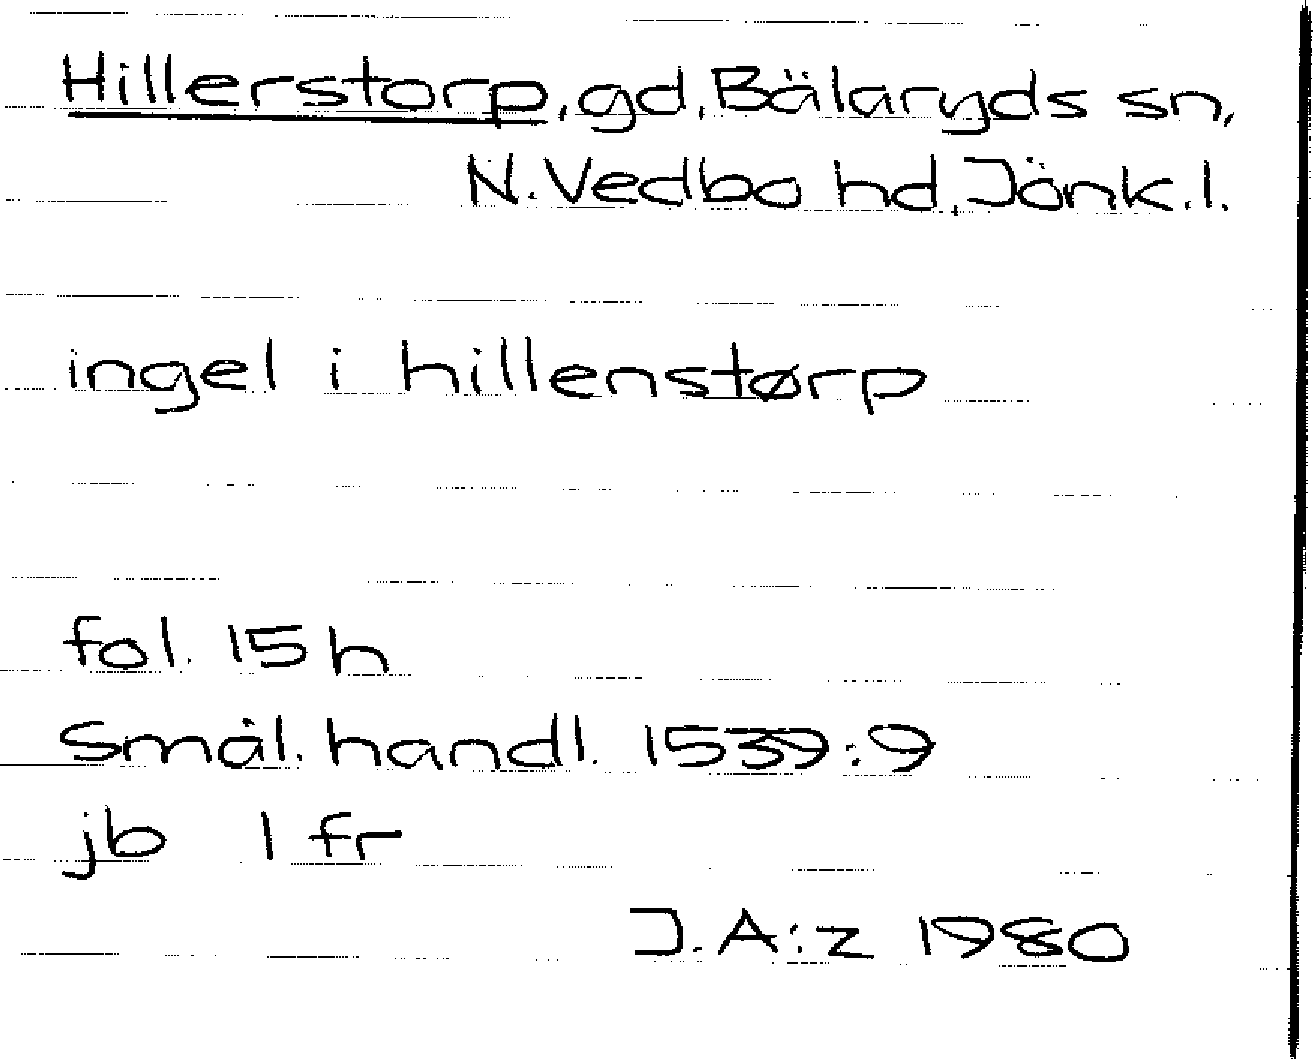 Hillerstorp, gd, Bälaryds sn,
N. Vedbo hd, Jönk. l.
ingel i hillenstørp
fol. 15 h
Smål. handl. 1539:9
jb 1 fr
J. A:z 1980